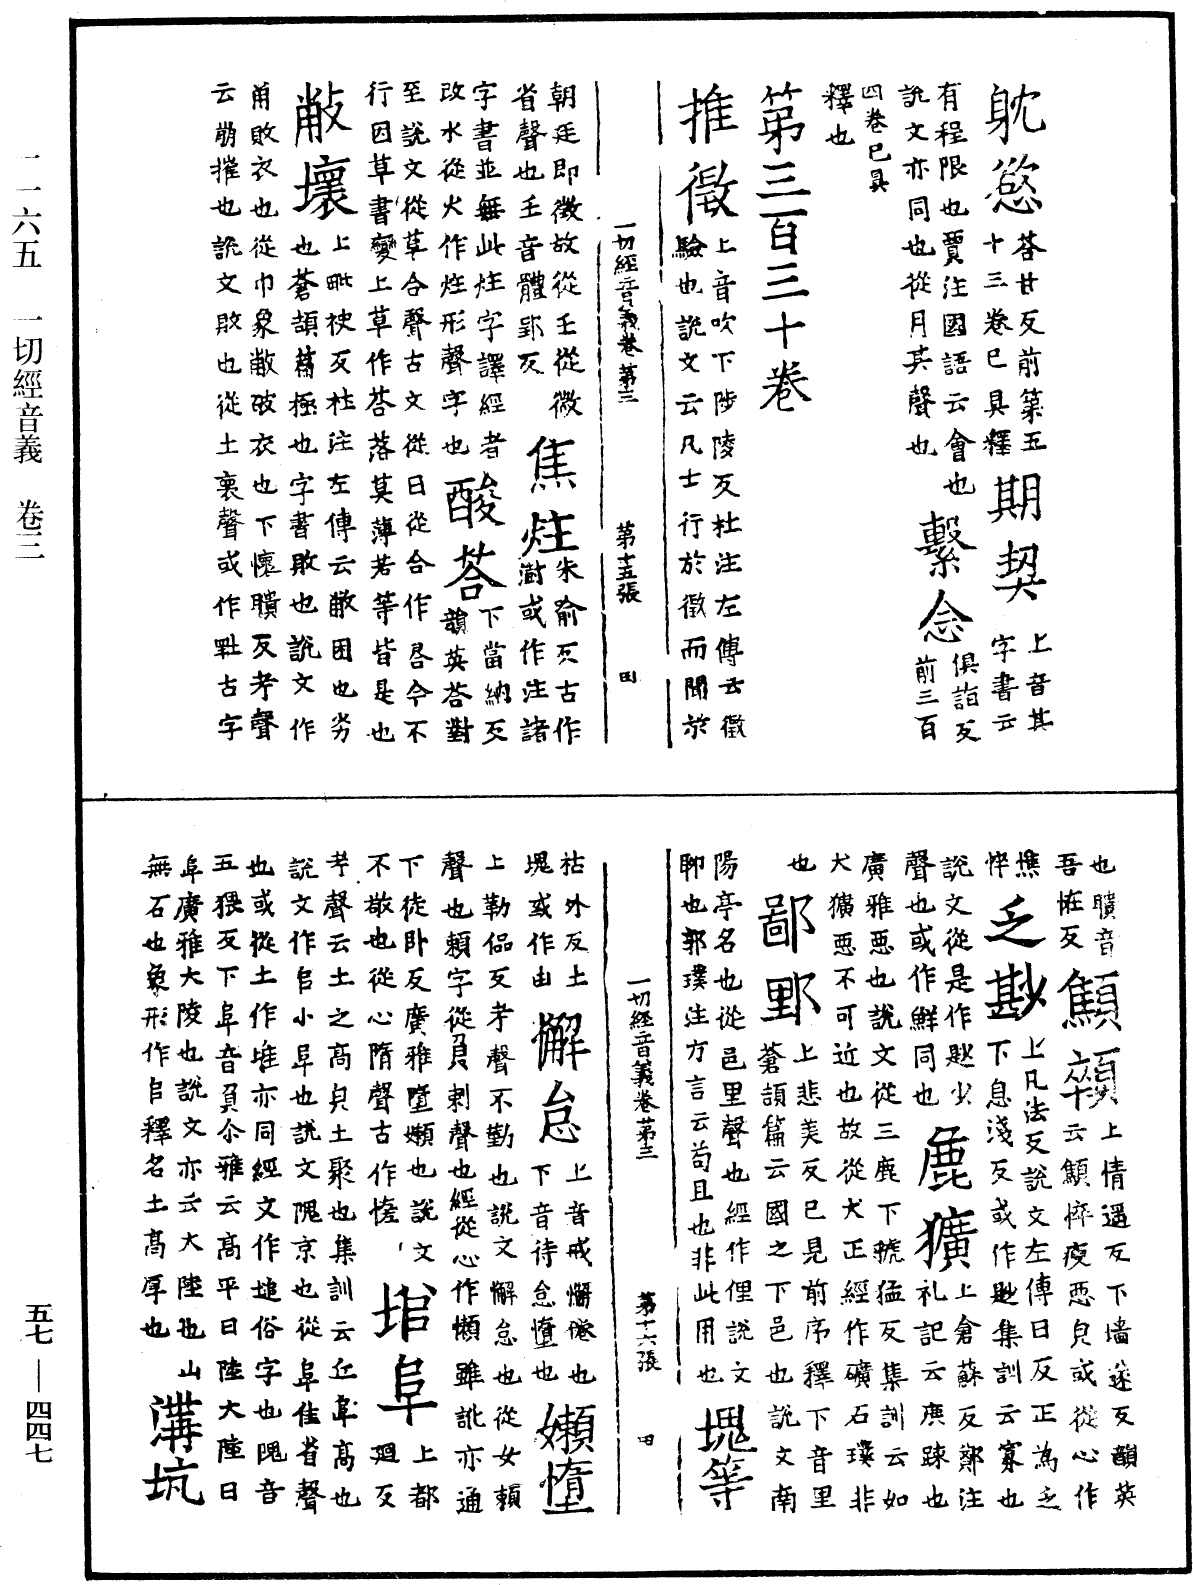 二一六五　一切經音義　卷三
五七—四四七
躭慾荅甘反前第五
十三卷巳具釋期契上音其
字書云
有程限也賈注國語云會也
說文亦同也從月其聲也繫念俱詣反
前三百
四卷巳具
釋也
第三百三十卷
推徵上音吹下陟陵反杜注左傳云徵
驗也說文云凡士行於徵而聞於
一切經音義卷第三　第十五張　田
朝廷即徵故從壬從微
省聲也壬音體郢反焦炷朱俞反古作
澍或作注諸
字書並無此炷字譯經者
改水從火作炷形聲字也酸荅下當納反
韻英荅對
至說文從草合聲古文從日從合作㕣今不
行因草書變上草作荅落莫薄若等皆是也
敝壞上毗袂反杜注左傳云敝困也劣
也蒼頡篇極也字書敗也說文作
㡀敗衣也從巾象敝破衣也下懷聵反考聲
云崩摧也說文敗也從土褱聲或作𡊸古字
也聵音
吾恠反顦顇上情遥反下墙遂反韻英
云顦悴瘦惡皃或從心作
憔
悴乏尠上凡法反說文左傳曰反正為乏
下息淺反或作尟集訓云寡也
說文從是作尟少
聲也或作鮮同也麁獷上倉蘇反鄭注
礼記云麁踈也
廣雅惡也說文從三鹿下虢猛反集訓云如
犬獷惡不可近也故從犬正經作礦石璞非
也鄙野上悲美反巳見前序釋下音里
蒼頡篇云國之下邑也說文南
陽亭名也從邑里聲也經作俚說文
聊也郭璞注方言云苟且也非此用也塊等
一切經音義卷第三　第十六張　田
枯外反土
塊或作凷懈怠上音戒懶倦也
下音待怠憧也嬾憜
上勒侃反考聲不勤也說文懈怠也從女賴
聲也賴字從負剌聲也經從心作懶雖訛亦通
下徒卧反廣雅憜嬾也說文
不敬也從心隋聲古作憜㙐阜上都
廻反
考聲云土之高皃土聚也集訓云丘阜高也
說文作𠂤小阜也說文隗京也從阜佳省聲
也或從土作堆亦同經文作塠俗字也隗音
五猥反下阜音負尒雅云高平曰陸大陸曰
阜廣雅大陵也說文亦云大陸也山
無石也象形作𠂤釋名土高厚也溝坑